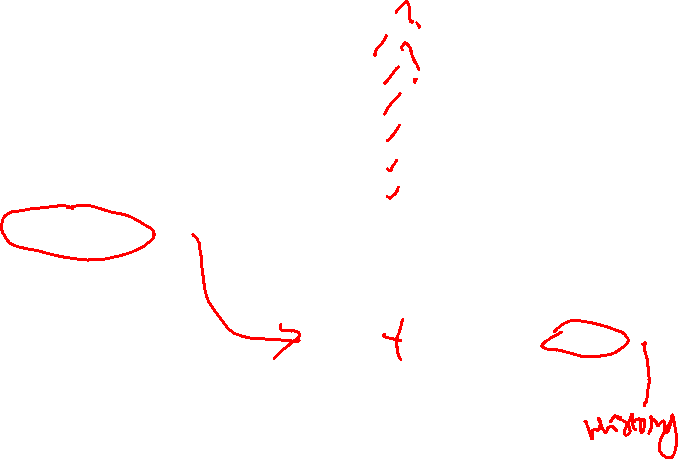 ?
?
history